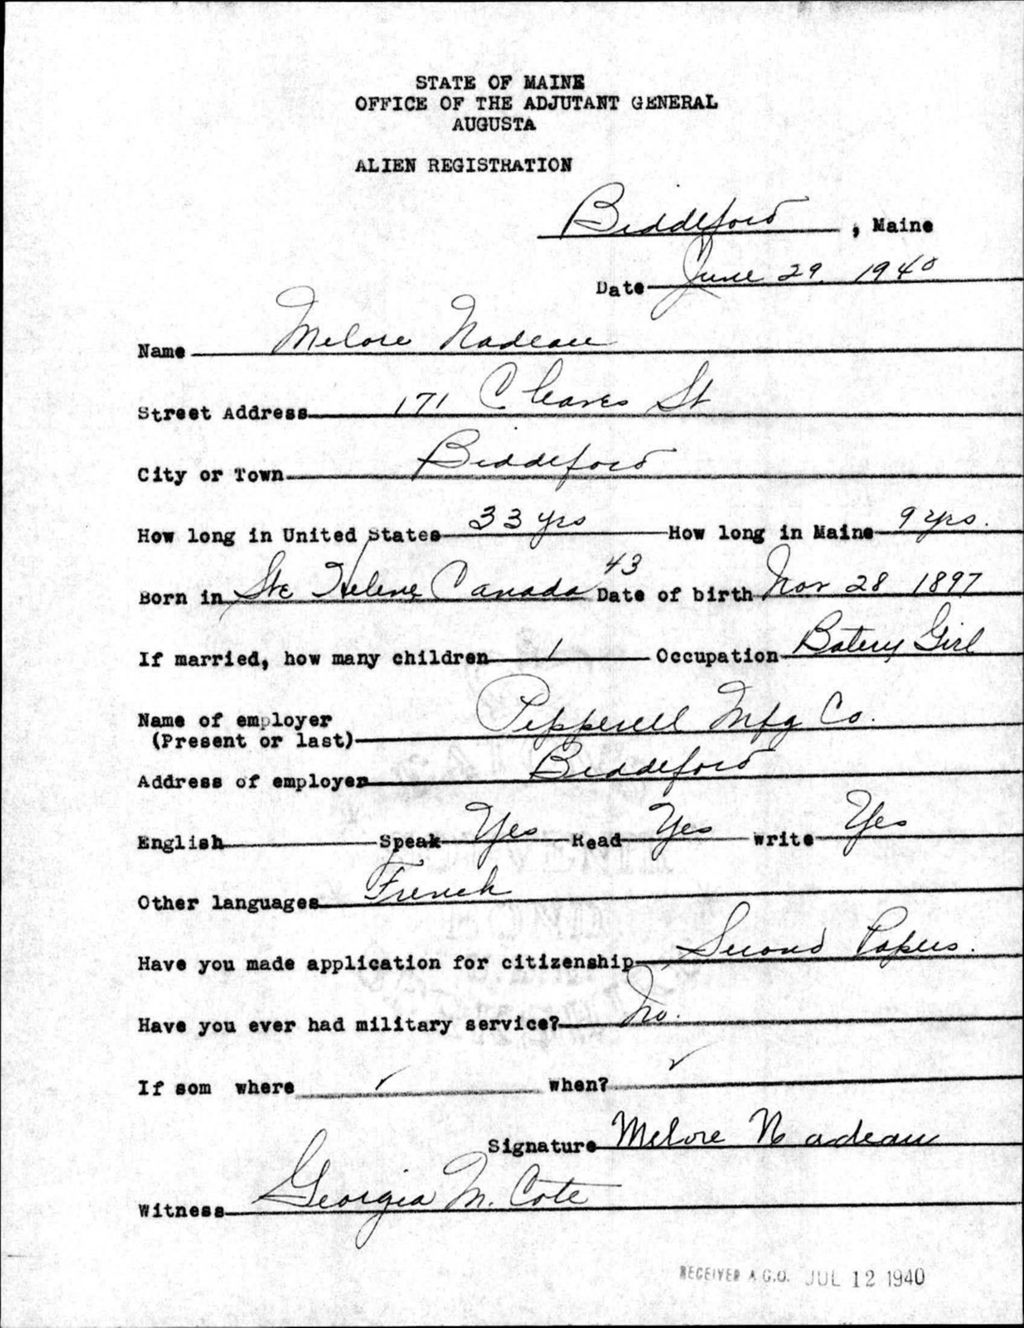 STATE OF MAINE
OFFICE OF THE ADJUTANT GENERAL
AUGUSTA
ALIEN REGISTRATION
Biddeford, Maine
Date June 29, 1940
Name Melore Nadeau
Street Address 171 Cleaves St
City or Town Biddeford
How long in United States 33 yrs How long in Maine 9 yrs.
43
Born in Ste Helene Canada Date of birth Nov 28 1897
If married, how many children 1 Occupation Batery Girl
Name of employer
(Present or last) Pepperell Mfg Co.
Address of employer Biddeford
English Speak Yes Read Yes Write Yes
Other languages French
Have you made application for citizenship Second Papers.
Have you ever had military service? No.
If som where ✓ when? ✓
Signature Melore Nadeau
Witness Georgia M. Cote
RECEIVED A.G.O. JUL 12 1940